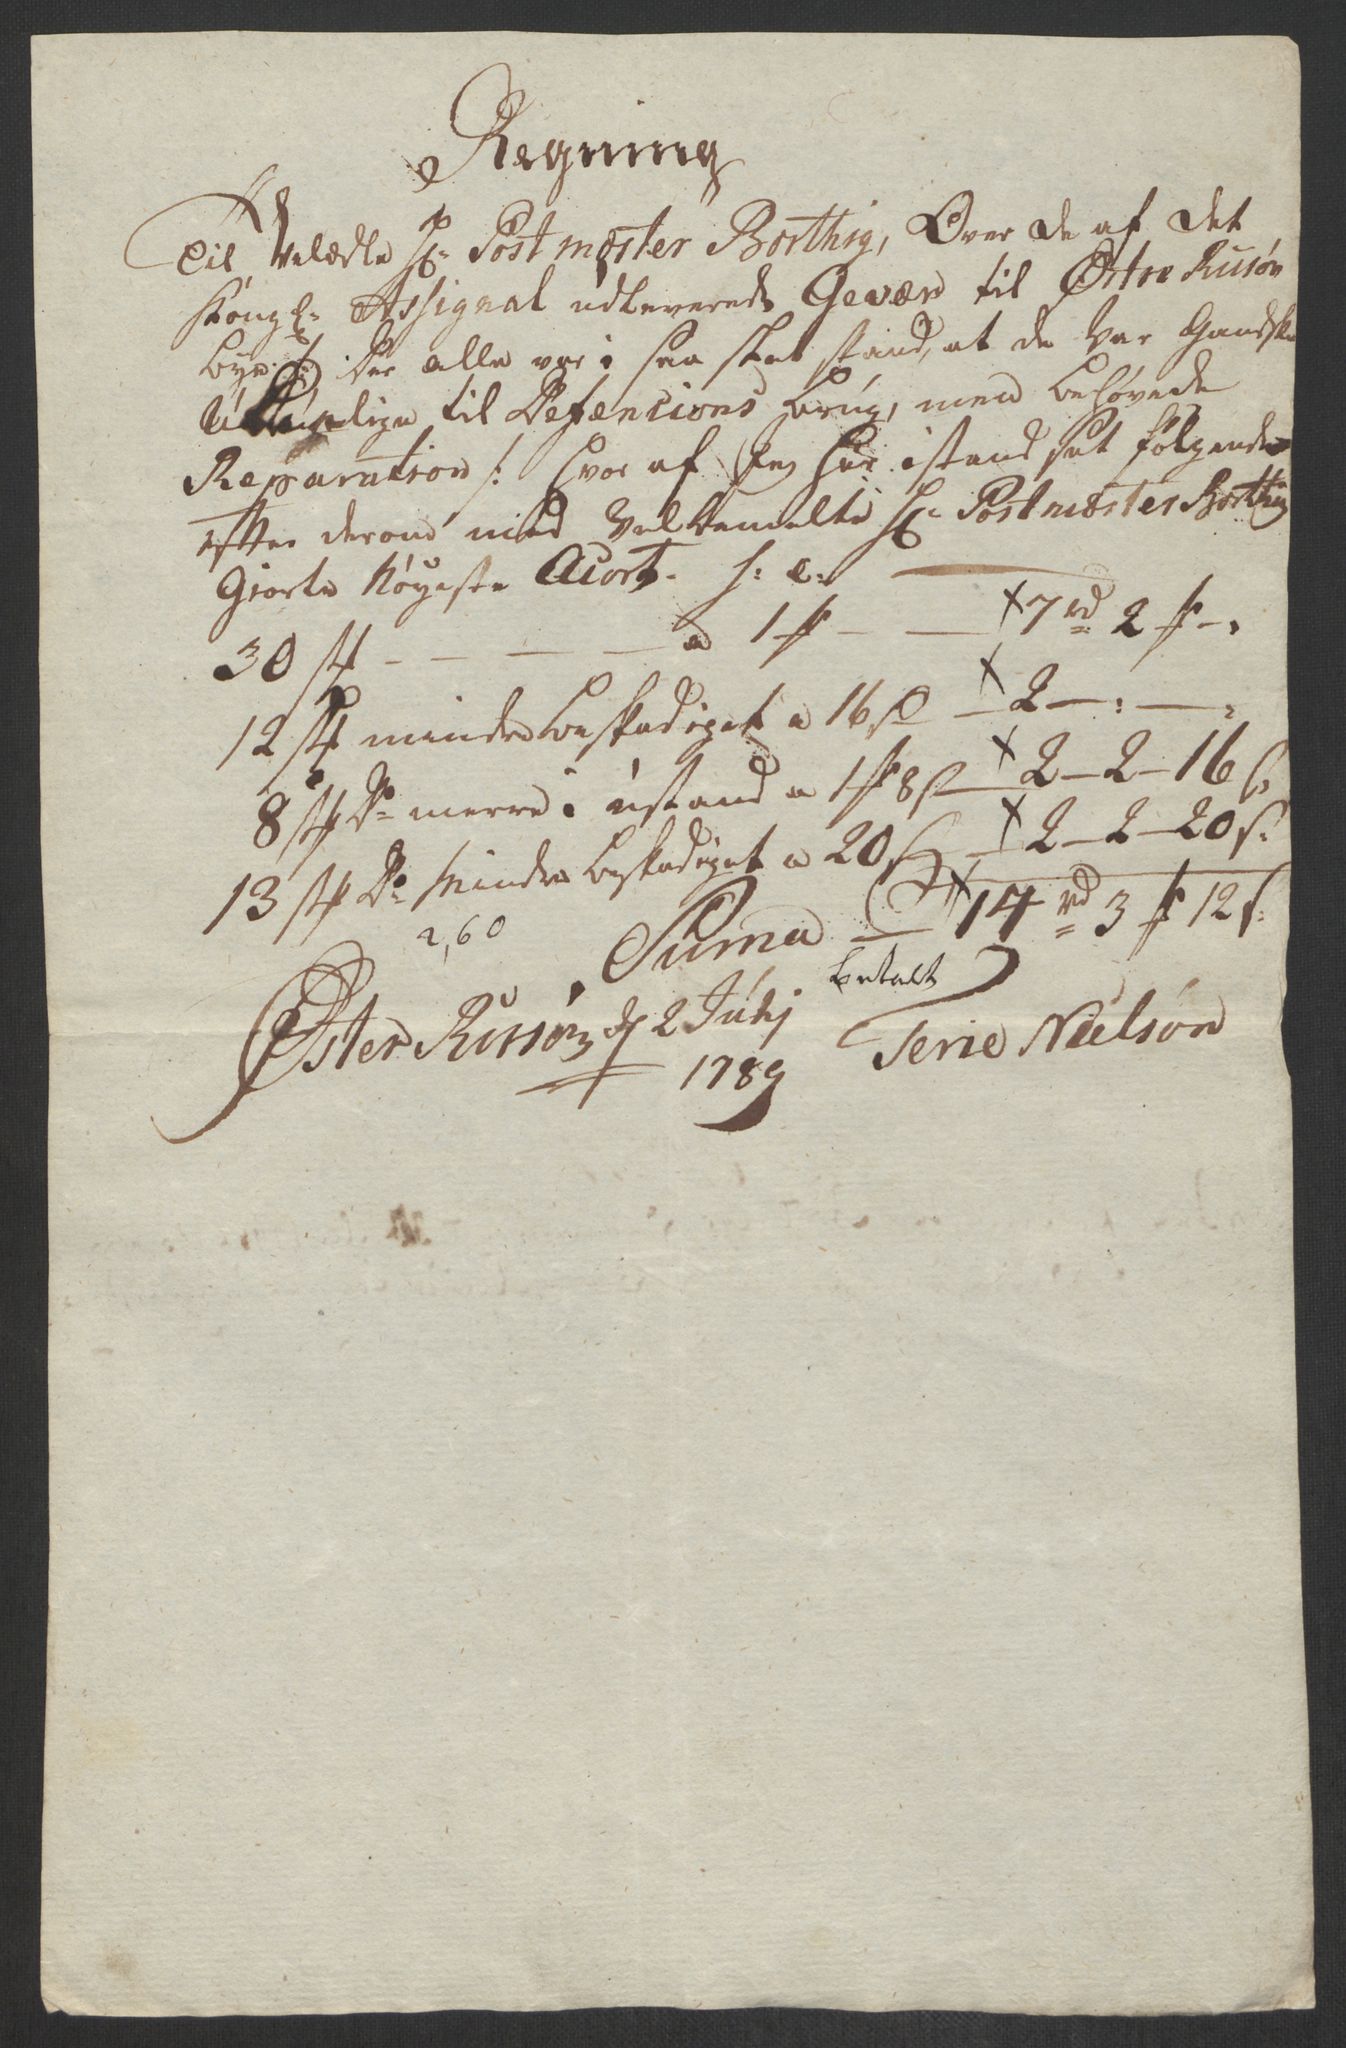 Regning
Til Velædle Hr: Postmester Borthig, Over de af det
Kongl: Assignal udleverede Gevær til Østre Riisøer
Bye /: Der alle var i saa slet stand, at de var Gandske
til Defencions brug, men behøvede
Reparation :/ hvor af Jeg har istand sat følgende
efter derom med Velbemelte Hr: Postmester Borthig
Giorte Nøyeste Acort. S: E:
30 st — — — — a 1 ₻ — — 7 rd 2 ₻ — .
12 st mindre beskadiget a 16 ß — 2 — : — :
8 st Do merre i ustand a 1 ₻ 8 ß — 2 — 2 — 16 ß
13 st Do mindre beskadiget a 20 ß — 2 — 2 — 20 ß:
Suma — 14 rd 3 ₻ 12 ß:
2,60
betalt
Øster Riisøer d 2 Julij
1789
Terie Nielsøn